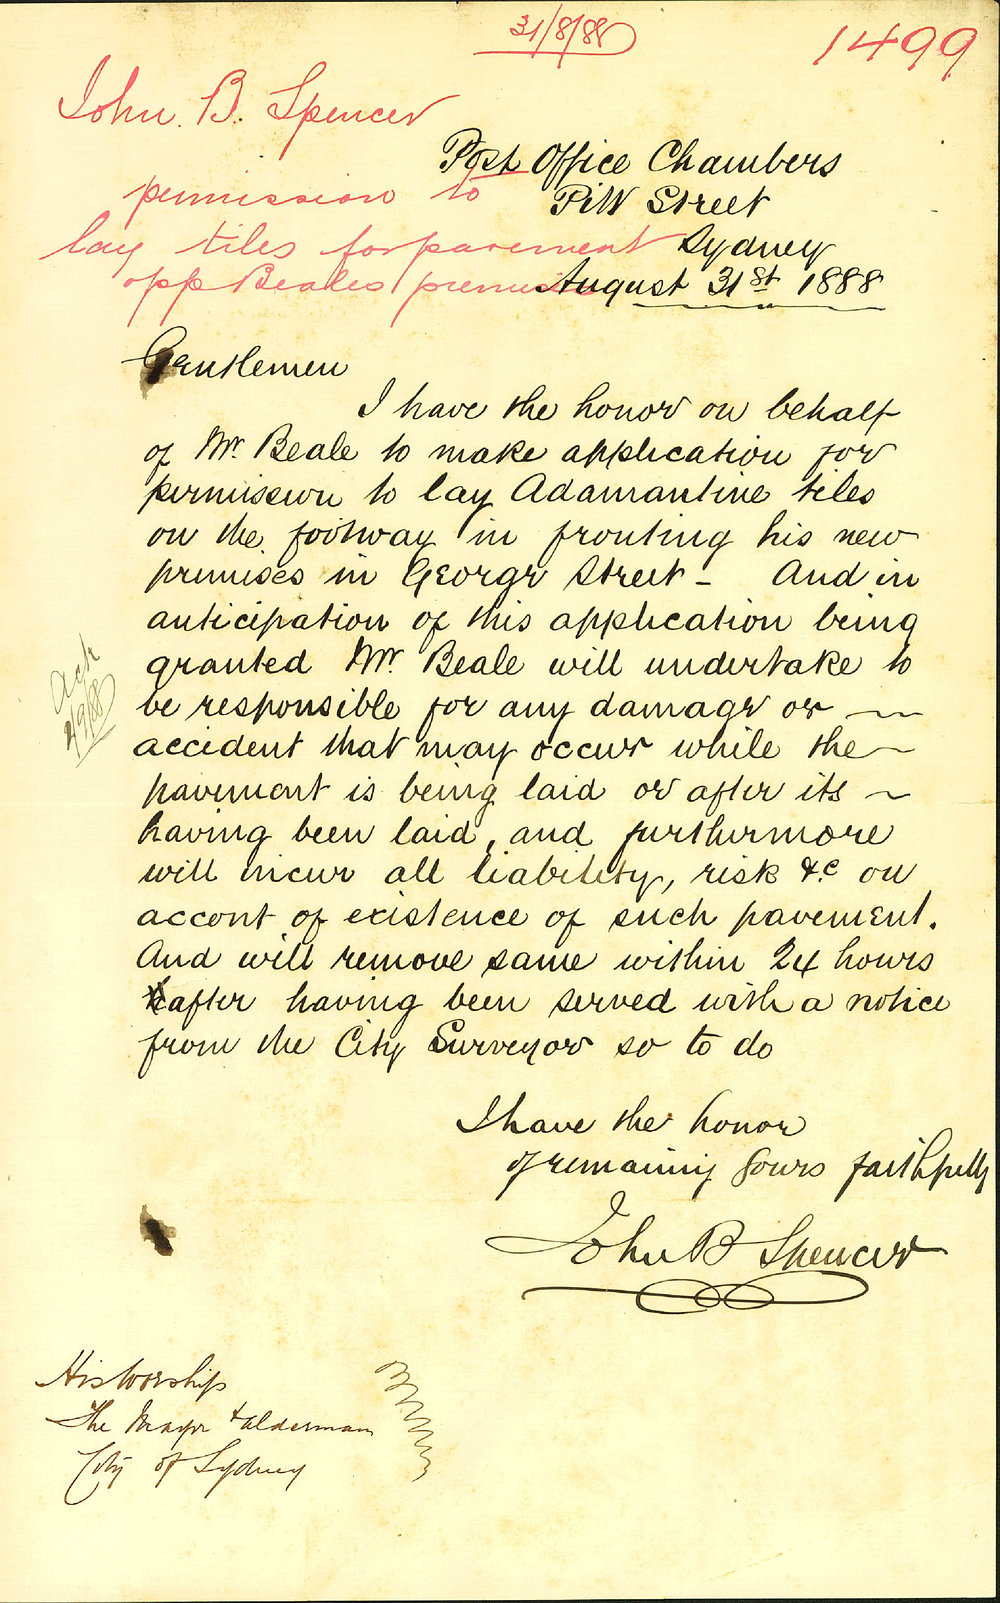 31/8/88
1499
John B. Spencer
permission to
lay tiles for pavement
opp Beales premises
Post Office Chambers
Pitt Street
Sydney
August 31st 1888
Gentlemen
I have the honor on behalf
of Mr. Beale to make application for
permission to lay Adamantine tiles
on the footway in fronting his new
premises in George Street - And in
anticipation of this application being
granted Mr Beale will undertake to
be responsible for any damage or
accident that may occur while the
pavement is being laid or after its
having been laid, and furthermore
will incur all liability, risk &c on
accont of existence of such pavement.
And will remove same within 24 hours
after having been served with a notice
from the City Surveyor so to do
Ack
4/9/88
I have the honor
of remaining Yours faithfully
John B Spencer
His Worship
The Mayor & Alderman
City of Sydney